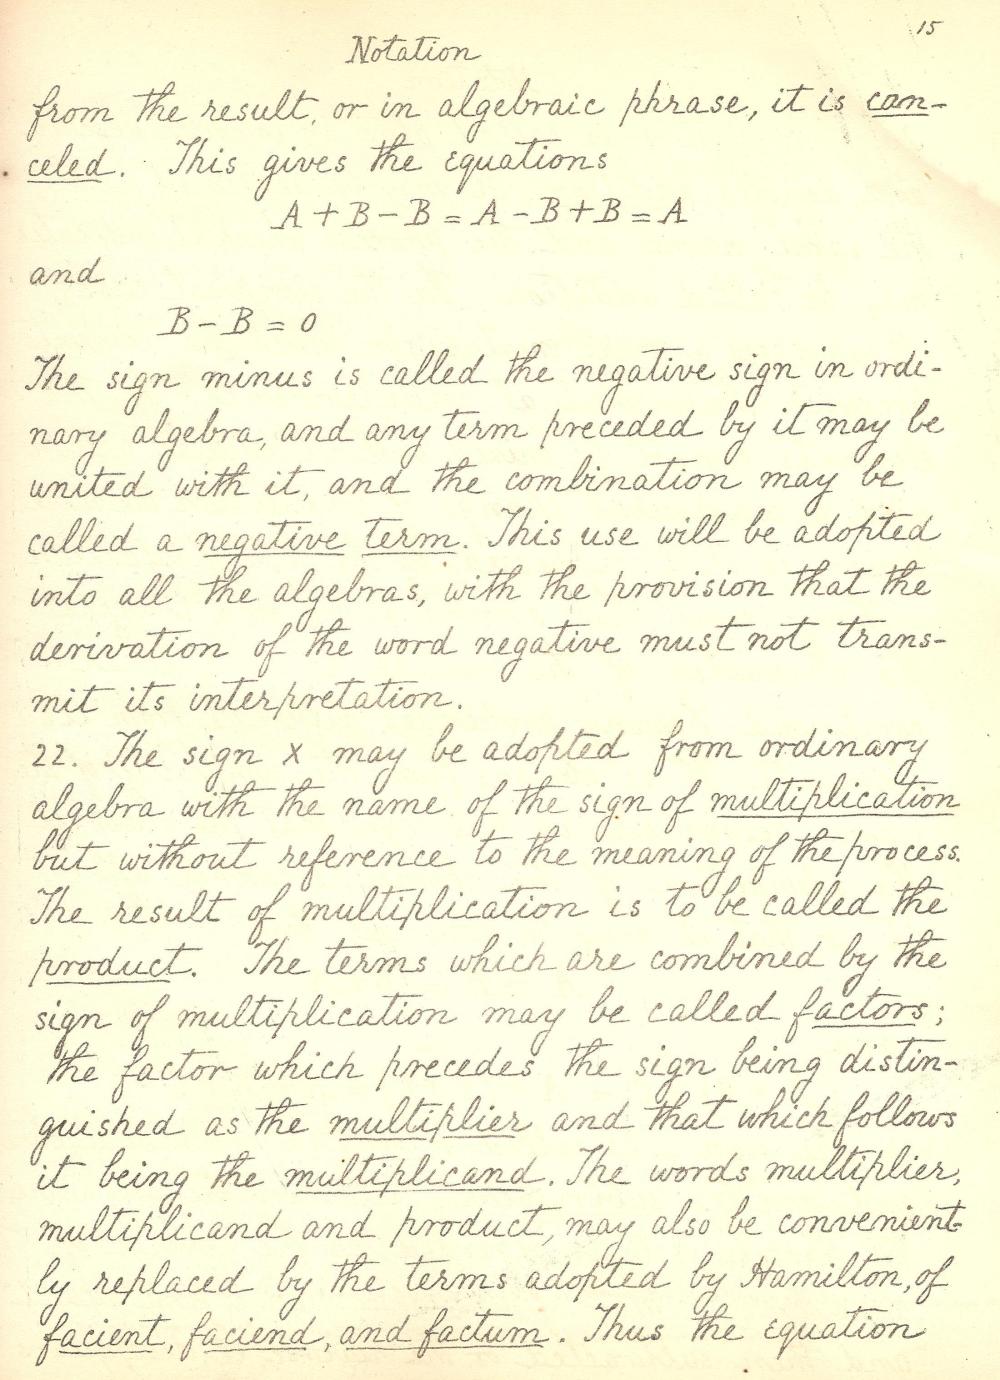 15
Notation
from the result, or in algebraic phrase, it is can-
celed. This gives the equations
A + B - B = A - B + B = A
and
B - B = 0
The sign minus is called the negative sign in ordi-
nary algebra, and any term preceded by it may be
united with it, and the combination may be
called a negative term. This use will be adopted
into all the algebras, with the provision that the
derivation of the word negative must not trans-
mit its interpretation.
22. The sign x may be adopted from ordinary
algebra with the name of the sign of multiplication
but without reference to the meaning of the process.
The result of multiplication is to be called the
product. The terms which are combined by the
sign of multiplication may be called factors;
the factor which precedes the sign being distin-
guished as the multiplier and that which follows
it being the multiplicand. The words multiplier,
multiplicand and product, may also be convenient-
ly replaced by the terms adopted by Hamilton, of
facient, faciend, and factum. Thus the equation